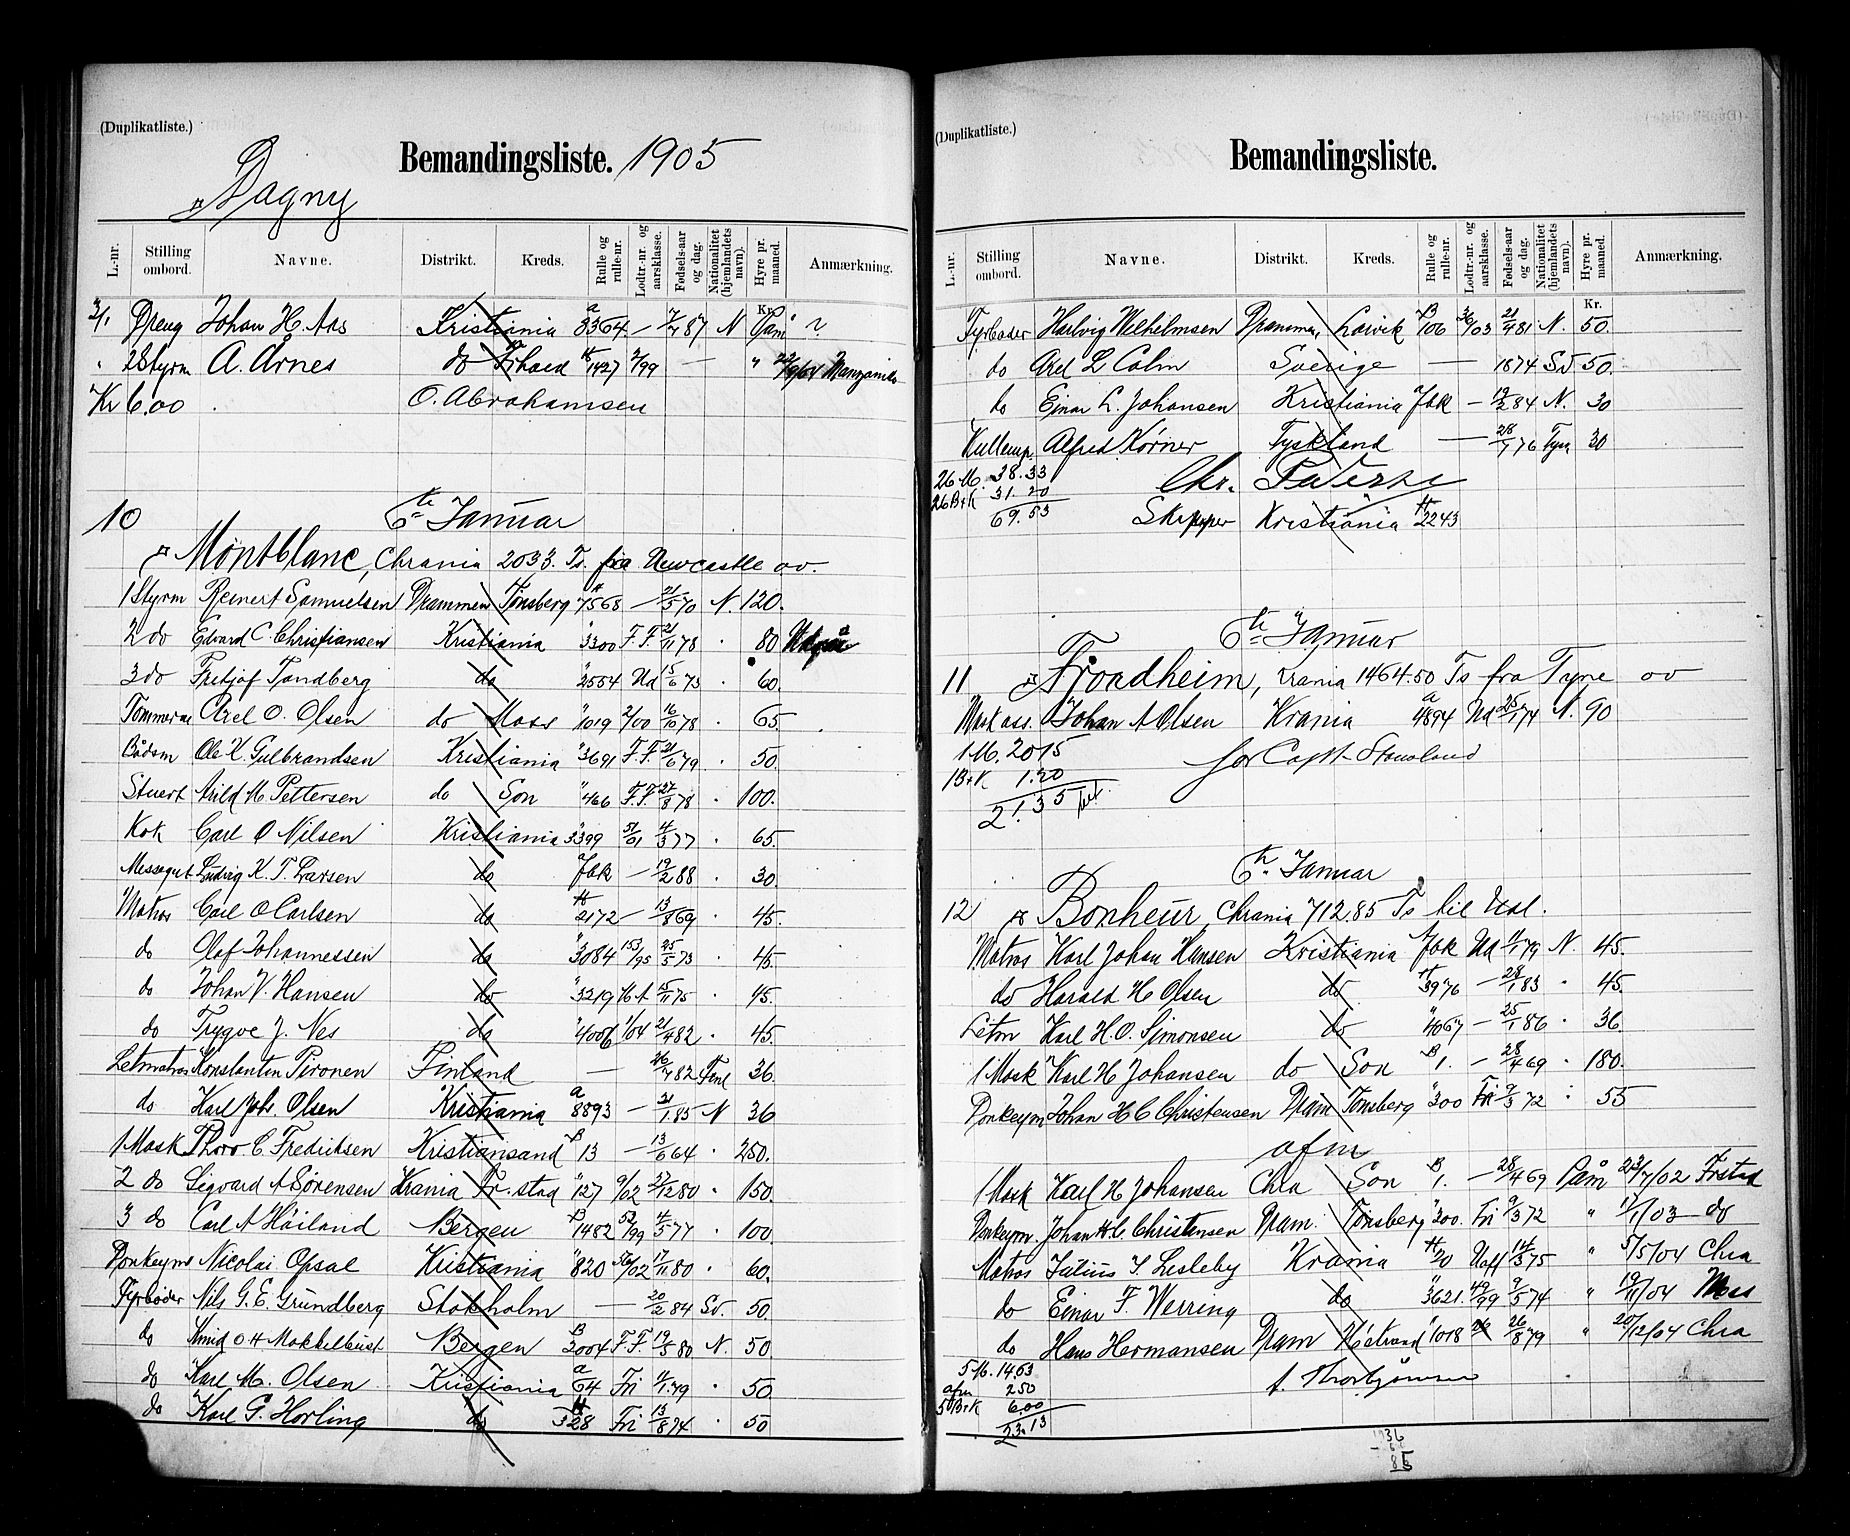 (Duplikatliste.)
Bemandingsliste. 1905
"Dagny
L.-nr. Stilling ombord. Navne. Distrikt. Kreds. Rulle og rulle-nr. Lodtr-nr. og aarsklasse. Fødsels-aar og dag. Nationalitet (hjemlandets navn). Hyre pr. maaned. Anmærkning.
Kr.
3/1 Dreng Johan H. Aas Kristiania a 8364 — 7/7 87 N
" 2 Styrm A. Årnes do H 1427 2/99 — "
Kr 6.00 O. Abrahamsen
10 6te Januar
"Montblanc, Chrania 2033. Ts. fra Newcastle av.
1 Styrm Reinert Samuelsen Drammen Tønsberg H 7568 — 21/5 70 N. 120.
2 do Edvard C. Christiansen Kristiania " 3300 F.F. 21/11 78 . 80
3 do Fritjof Tandberg do " 2554 Ud 15/6 73 . 60.
Tømmerm Axel O. Olsen do Moss " 1019 2/00 16/10 78 . 65.
Bådsm Ole K. Gulbrandsen Kristiania " 3691 F.F. 21/6 79 . 50.
Stuert Arild M. Pettersen do Son " 466 F.F. 27/8 78 . 100.
Kok Carl O Nilsen Kristiania 3399 51/01 4/3 77 . 65.
Messegut Ludvig K. T. Larsen do a fbk — 19/2 88 . 30.
Matros Carl O Carlsen do H 2172 — 13/8 69 . 45.
do Olaf Johannessen do " 3084 153/95 25/5 73 . 45.
do Johan V. Hansen do " 3219 M A 15/11 75 . 45.
do Trygve J. Nes do " 4006 1/04 21/4 82 . 45.
Letmatros Konstantin Pironen Finland — 26/7 82 Finl 36.
do Karl Johs. Olsen Kristiania a 8893 — 31/1 85 N 36
1 Mask Thoro C. Fredriksen Kristiansand B 13 — 13/6 64 . 250.
2 do Sigvard A Sørensen Krania Fr.stad " 127 9/02 27/12 80 . 150.
3 do Carl A Høiland Bergen B 1482 53/99 4/5 77 . 100.
Donkeym Nicolai Opsal Kristiania " 820 56/02 17/11 80 . 60.
Fyrbøder Nils G. E. Grundberg Stokholm — 20/2 84 Sv. 50.
do Bergen B 2004 F.F. 19/5 80 N. 50.
do Karl M. Olsen Kristiania a 64 Fri 11/1 79 . 50
do Karl G. Horling do H 328 Fri 13/8 74 . 50
(Duplikatliste.)
Bemandingsliste.
L.-nr. Stilling ombord. Navne. Distrikt. Kreds. Rulle og rulle-nr. Lodtr-nr. og aarsklasse. Fødsels-aar og dag. Nationalitet (hjemlandets navn). Hyre pr. maaned. Anmærkning.
Kr.
Fyrbøder Hartvig Wilhelmsen Drammen, Larvik B 106 36/03 21/4 81 N. 50.
do Axel L Calm Sverige — 1874 Sv. 50.
do Einar L. Johansen Kristiania a fbk — 19/2 84 N. 30
Kullemp. Alfred Kørner Tyskland — 28/1 76 Tysk 30
26 M. 38.33
26 B+K 31.20
69.53
Skipper Kristiania H 2243
6te Januar
11 "Trondheim, Krania 1464.50 Ts fra Tyne av
Mask ass. Johan A Olsen Krania a 4894 Ud 25/1 74 N. 90
1 M. 20.15
1 B+K 1.20
21.35
for Capt. Stousland
6te Januar
12 "Bonheur, Chrania 712.85 Ts til Usl.
Matros Karl Johan Hansen Kristiania a fbk Ud 11/1 79 N. 45.
do Harald H Olsen do H 3976 — 28/1 83 . 45.
Letm Karl H. O. Simonsen do " 4067 — 25/1 86 . 36
1 Mask Karl H Johansen do Son B 1. — 28/4 69 . 180.
Donkeym Johan H C Christensen Dram Tønsberg " 300 Fri 9/3 72 . 55
afm
1 Mask Karl H Johansen Chra Son B 1. — 28/4 69 Påm 23/7/02 Frstad
Donkeym. Johan H. C. Christensen Dram. Tønsberg " 300. Fri 9/3 72 " 17/1/03 do
Matros Julius J. Lesleby Krania H 20 Uaff 14/3 75 " 5/5/04 Chra
do Einar F. Werring do " 3621. 49/99 9/5 74 " 19/11/04 Moss
do Hans Hermansen Dram H.strand " 1018 26/8 79 " 20/12/04 Chra
5 M. 14.63
afm 2.50
5 B+K 6.00
23.13
A. Thorbjørnsen